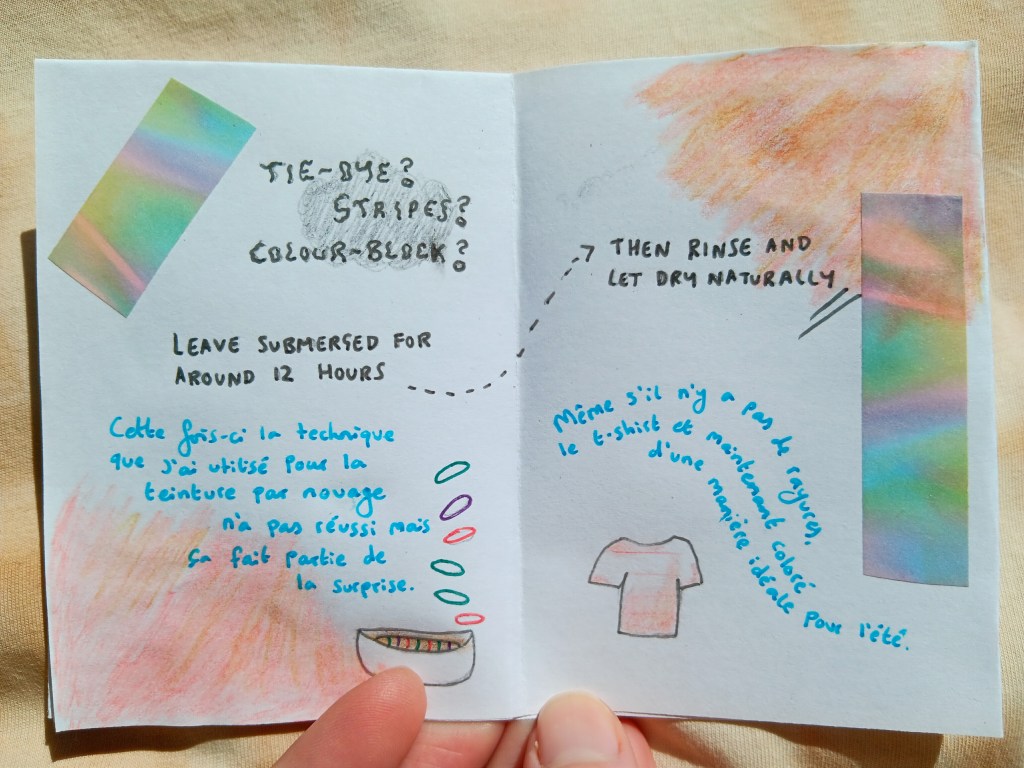 TIE-DYE?
STRIPES?
COLOUR-BLOCK?
LEAVE SUBMERGED FOR
AROUND 12 HOURS
Cette fois-ci la technique
que j'ai utilisé pour la
teinture par nouage
n'a pas réussi mais
ça fait partie de
la surprise.
THEN RINSE AND
LET DRY NATURALLY
Même s'il n'y a pas de rayures,
le t-shirt et maintenant coloré
d'une manière idéale pour l'été.